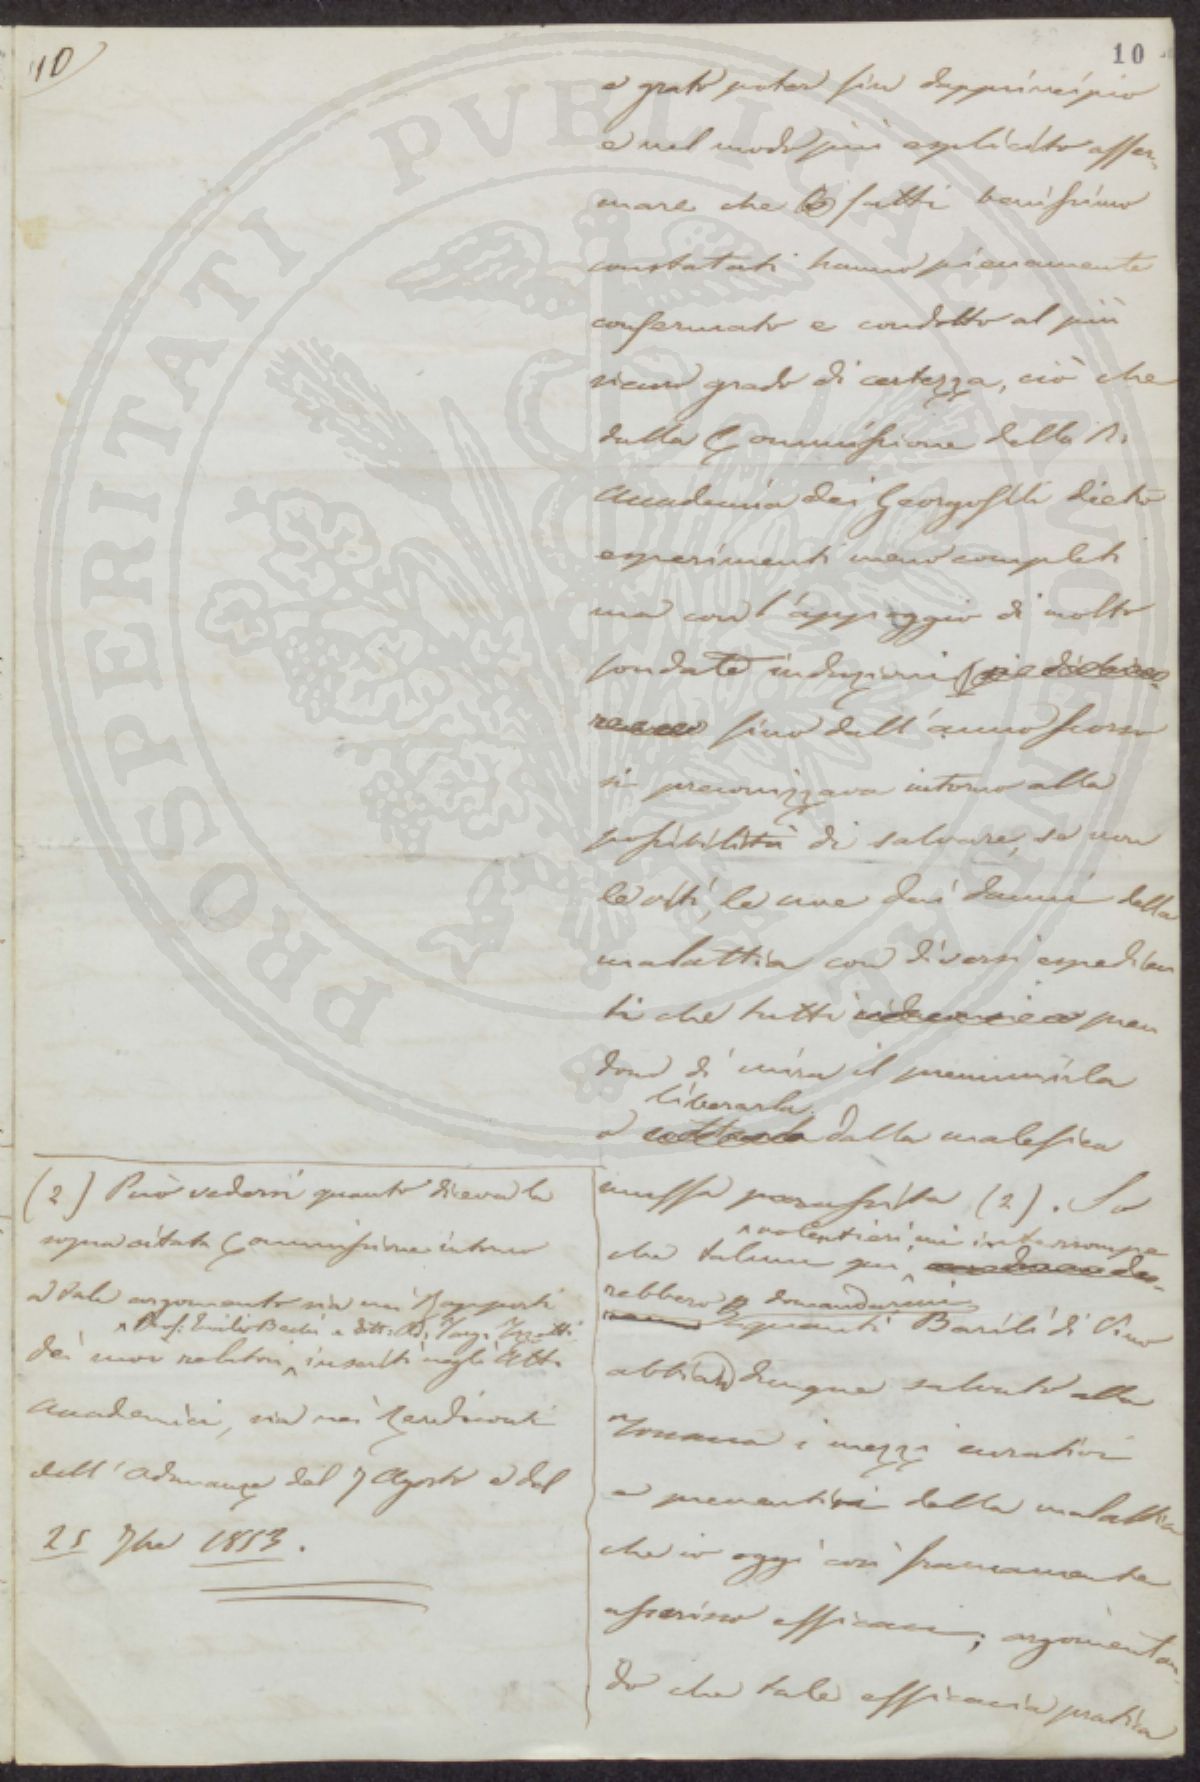 10
10
PROSPERITATI PUBLICAE AUGENDAE
e grato poter fin dapprincipio
e nel modo più esplicito affer-
mare che i fatti benissimo
constatati hanno pienamente
confermato e condotto al più
sicuro grado di certezza, ciò che
dalla Commissione della R.
Accademia dei Georgofili dietro
esperimenti meno completi
ma con l'appoggio di molto
fondate induzioni
fino dall'anno scorso
si preconizzava intorno alla
possibilità di salvare, se non
le viti, le uve dai danni della
malattia con diversi espedien
ti che tutti pren
dono di mira il premunirla
liberarla
o dalla malefica
muffa parassita (2). So
volentieri, mi interrompe
che taluni qui
rebbero domandarmi
quanti Barili di Vino
abbian dunque salvato alla
Toscana i mezzi curativi
e preventivi della malattia
che io oggi così francamente
asserisco efficaci; argomentan-
do che tale efficacia pratica
(2) Può vedersi quanto diceva la
sopra citata Commissione intorno
a tale argomento sia nei Rapporti
Prof. Emilio Bechi e Dott. Ad. Targ. Tozzetti
dei suoi relatori inseriti negli Atti
Accademici, sia nei Rendiconti
dell'Adunanza del 7 Agosto e del
25 7bre 1853.